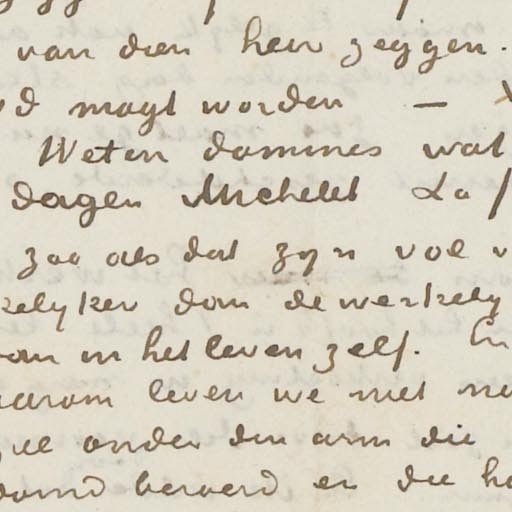 van dien heer zeggen.
d magt worden —
Weten dominees wat
dagen Michelet La
zoo als dat zyn voe
kelyker dan de werkely
van in het leven zelf. En
aarom leven we niet me
que onder den arm die
oord beroerd en die ho